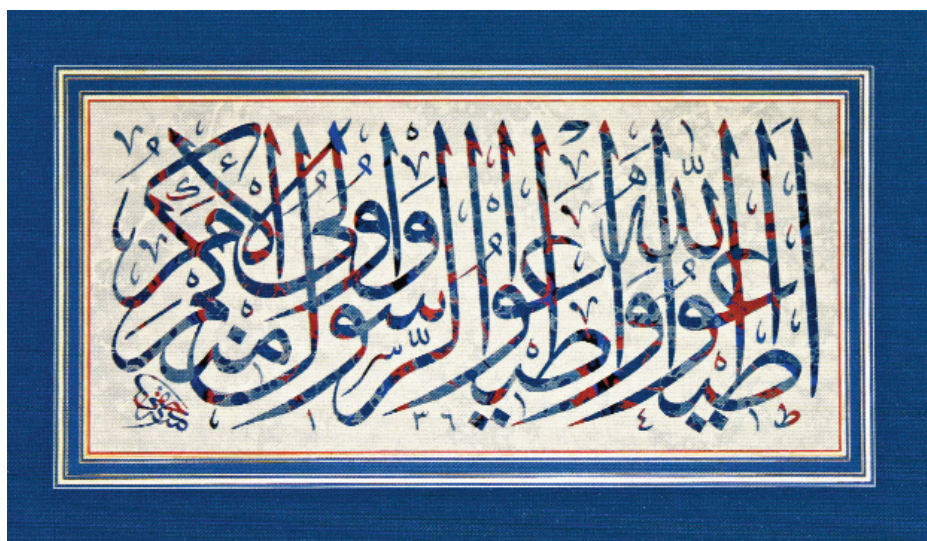 أطيعوا الله وأطيعوا الرسول وأولي الأمر منكم